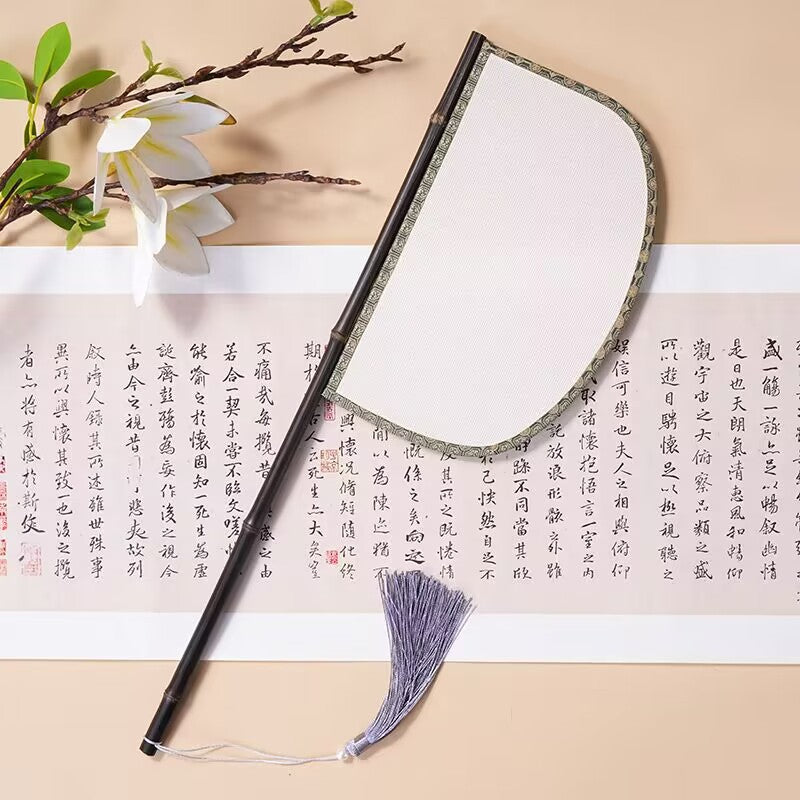 盛一觴一詠亦足以暢敘幽情
是日也天朗氣清惠風和暢仰
觀宇宙之大俯察品類之盛
所以遊目騁懷足以極視聽之
娛信可樂也夫人之相與俯仰
取諸懷抱悟言一室之內
託放浪形骸之外雖
躁不同當其欣
己快然自足不
及其所之既惓情
慨係之矣向之
間以為陳迹猶不
興懷況脩短隨化終
期於 古人云死生亦大矣豈
不痛哉每攬昔 感之由
若合一契未嘗不臨文嗟
能喻之於懷固知一死生為虛
誕齊彭殤為妄作後之視今
亦由今之視昔 悲夫故列
敘時人錄其所述雖世殊事
異所以興懷其致一也後之攬
者亦將有感於斯文